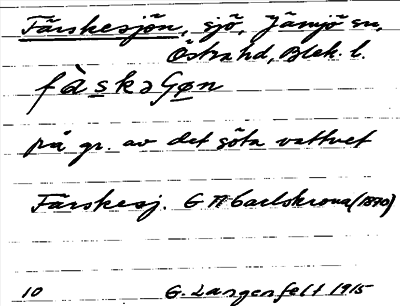 Färskesjön, sjö, Jämjö sn,
Östra hd, Blek. l.
på gr. av det söta vattnet
Färskesj. G A Carlskrona (1870)
10 G. Langenfelt 1915